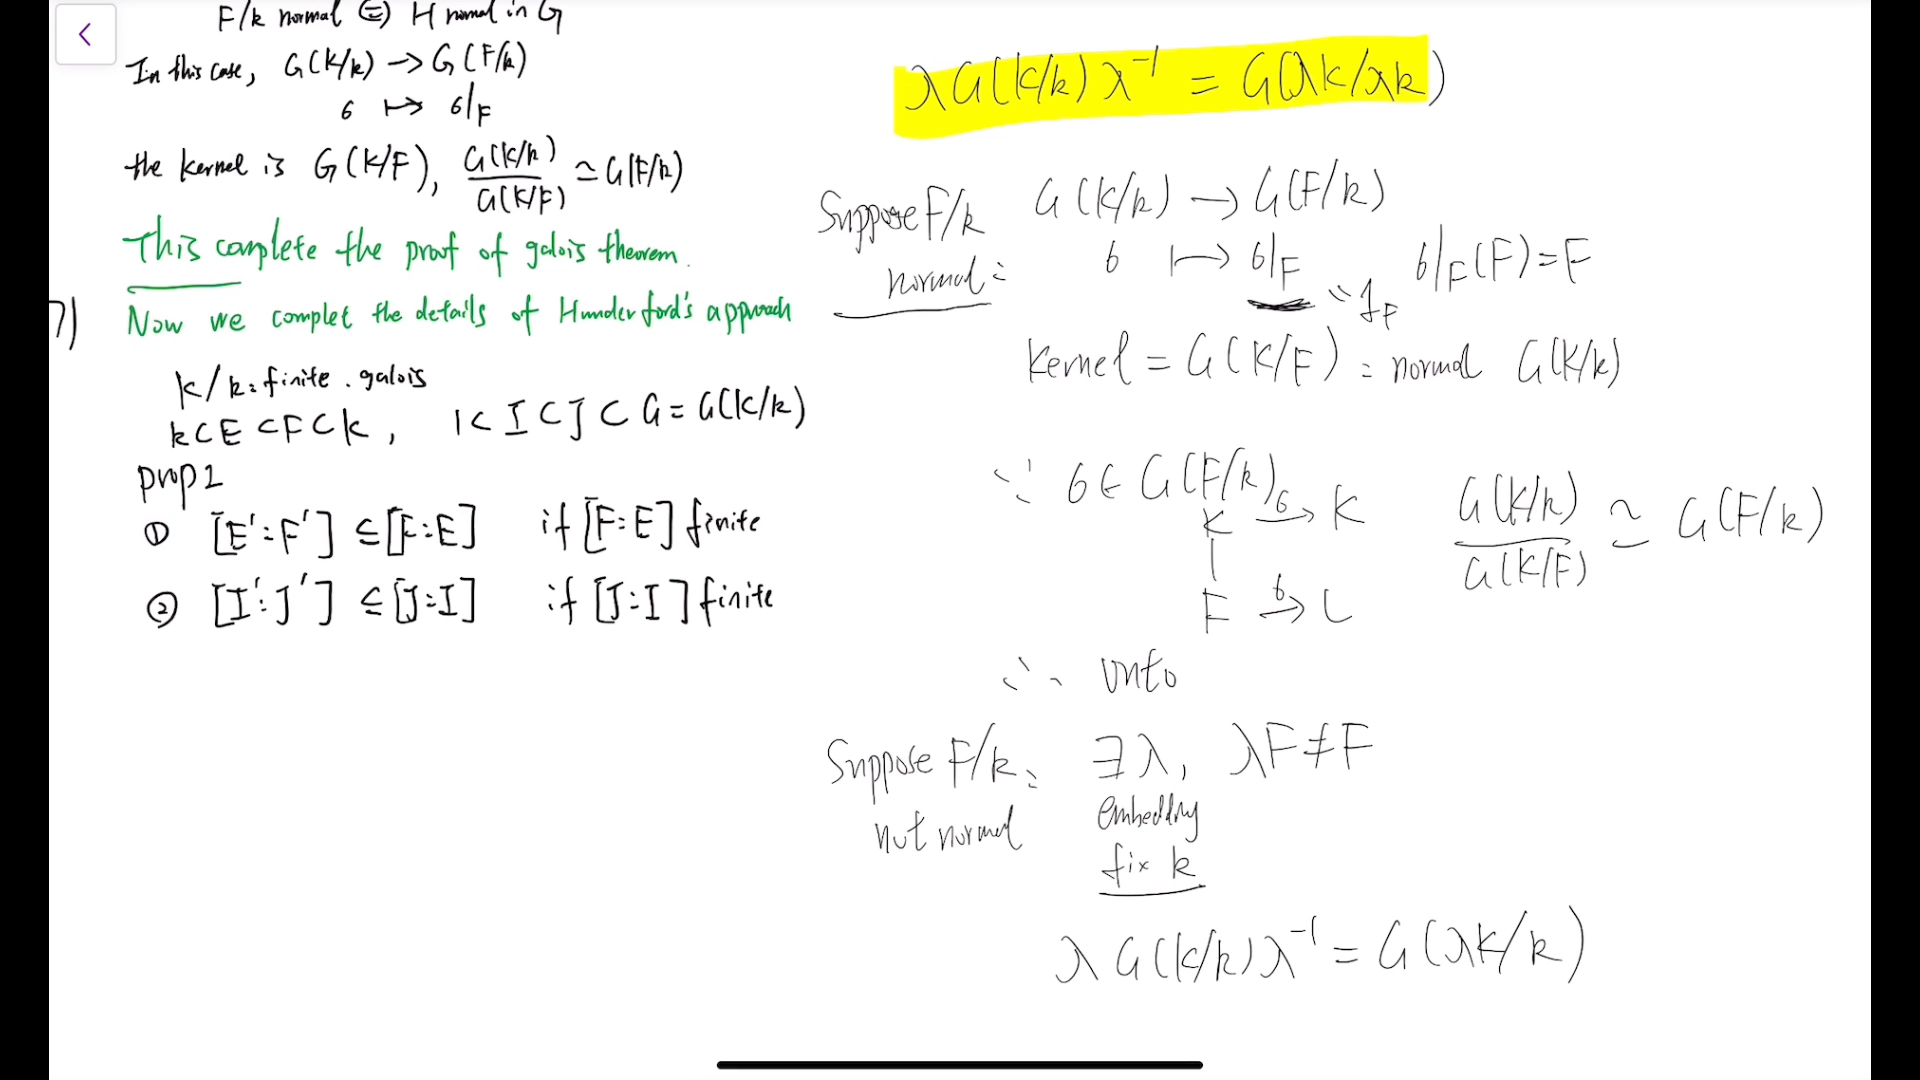 F/k normal ⇔ H normal in G
In this case, G(K/k) → G(F/k)
σ ↦ σ|F
the kernel is G(K/F), G(K/k)/G(K/F) ≃ G(F/k)
This complete the proof of galois theorem.
7) Now we complet the details of Hunderford's approach
K/k: finite. galois
k⊂E⊂F⊂K, 1<I⊂J⊂G=G(K/k)
prop1
① [E':F'] ≤ [F:E] if [F:E] finite
② [I':J'] ≤ [J:I] if [J:I] finite
λG(K/k)λ⁻¹ = G(λK/λk)
Suppose F/k normal: G(K/k) → G(F/k)
σ ↦ σ|F ∵ 1F σ|F(F)=F
Kernel = G(K/F) : normal G(K/k)
∵ σ∈G(F/k)
K σ→ K
F σ→ L
G(K/k)/G(K/F) ≃ G(F/k)
∴ onto
Suppose F/k: not normal ∃λ, λF≠F
embedding
fix k
λG(K/k)λ⁻¹ = G(λK/k)